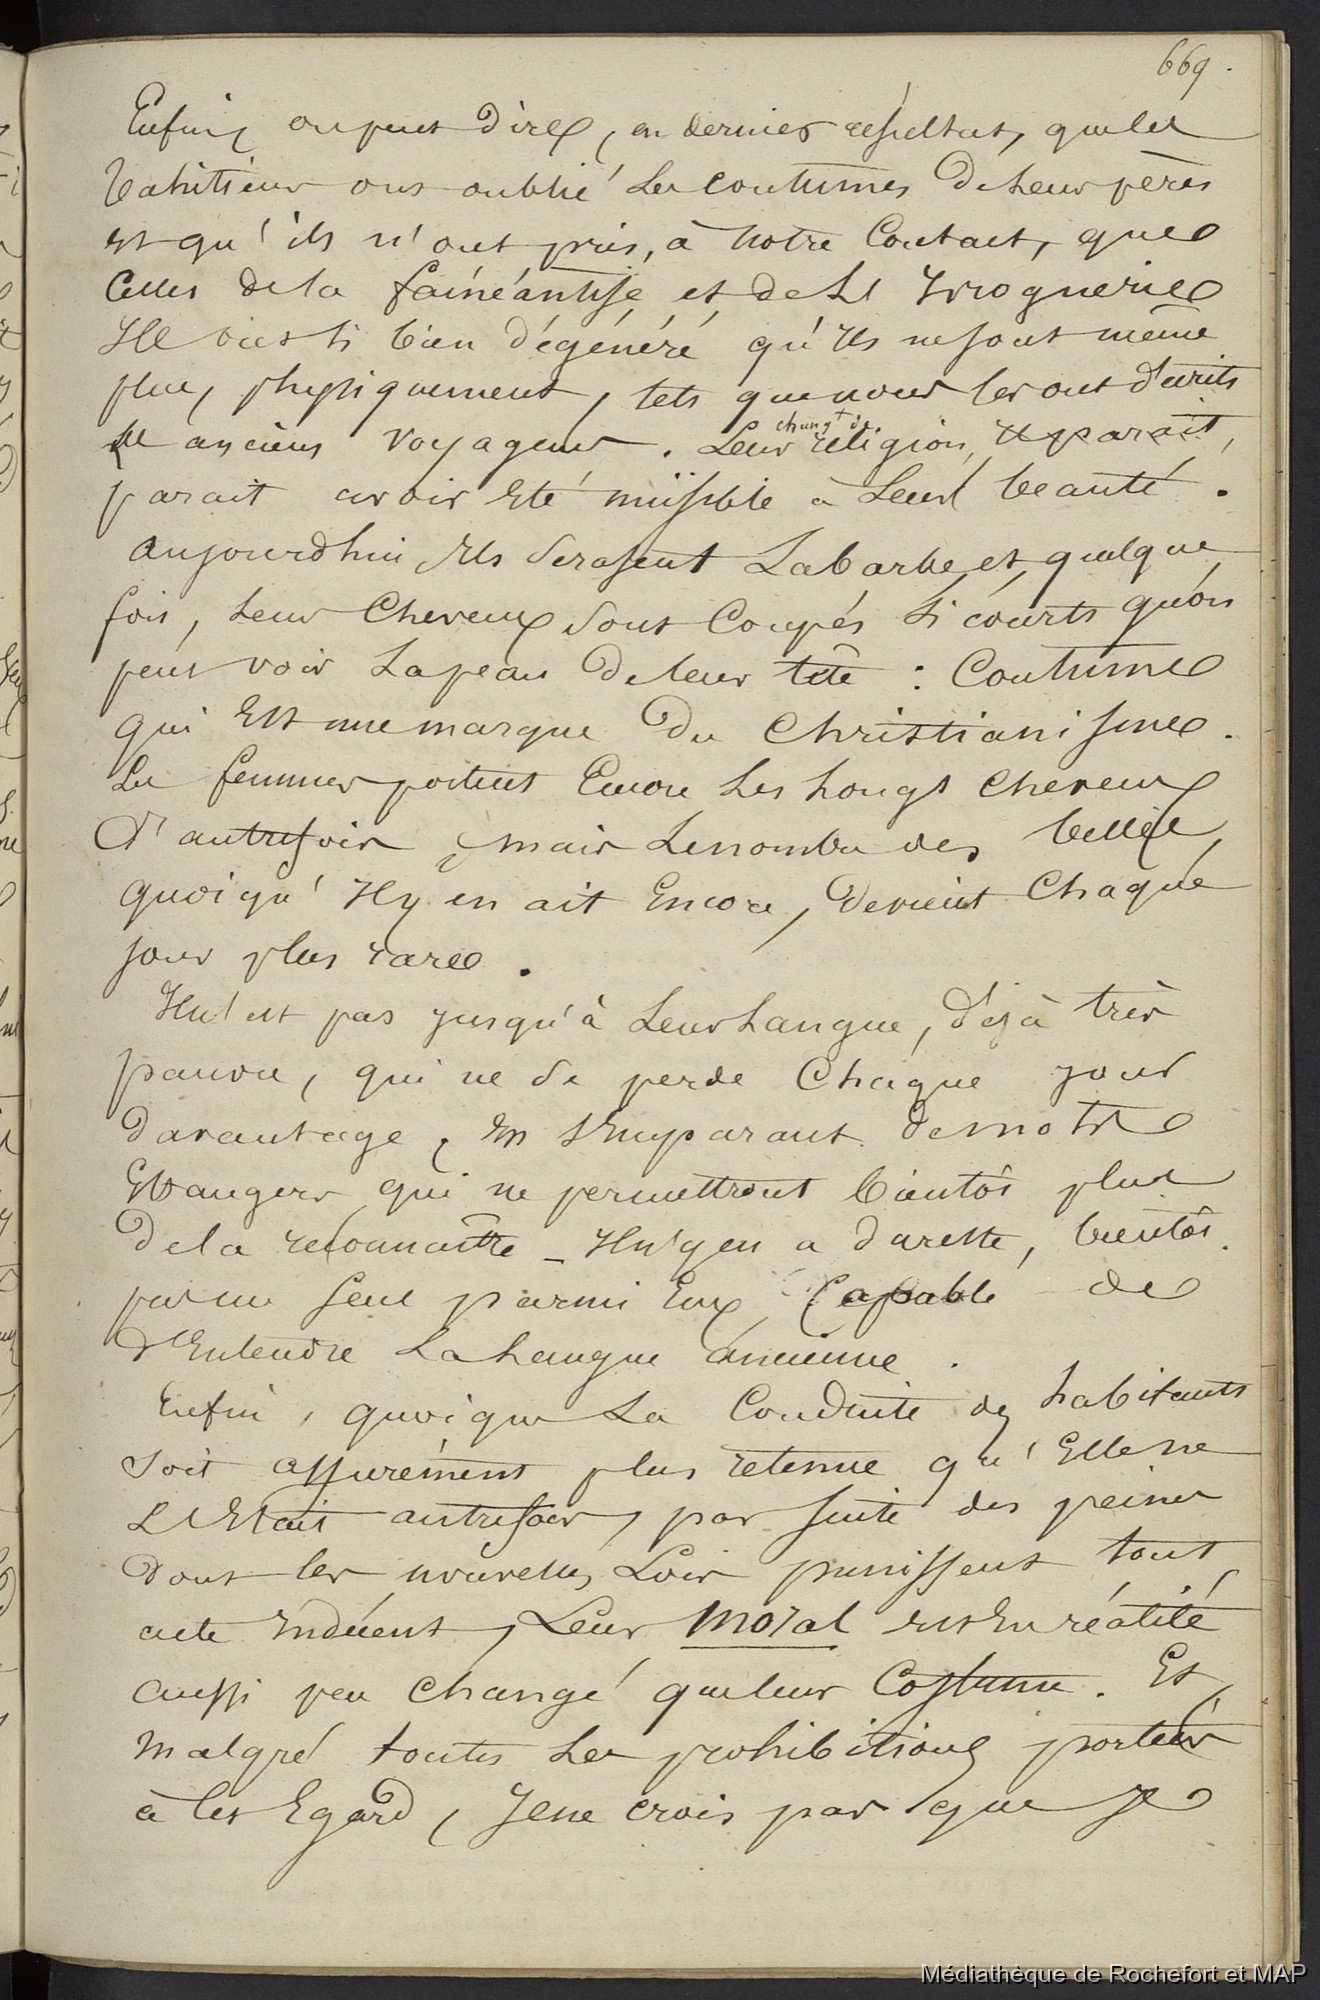 669.
Enfin, on peut dire, en dernier résultat, que les
Tahitiens ont oublié les coutumes de leurs pères
et qu'ils n'ont pris, à notre Contact, que
Celles de la fainéantise et de l'Ivrognerie
Ils ont si bien dégénéré qu'ils ne sont même
plus, physiquement, tels que nous les ont décrits
les anciens voyageurs. Leur chang.t de religion, il parait,
parait avoir été nuisible à Leur beauté.
Aujourd'hui Ils se rasent La barbe et, quelque
fois, leurs Cheveux sont Coupés si courts qu'on
peut voir La peau de leur tête : Coutume
qui Est une marque du Christianisme.
Les femmes portent Encore Les longs cheveux
d'autrefois, mais Le nombre des belles,
quoiqu'Il y en ait Encore, devient Chaque
jour plus rare.
Il n'est pas jusqu'à Leur Langue, déjà très
pauvre, qui ne se perde Chaque jour
davantage, en s'Emparant de mots
Etrangers qui ne permettront bientôt plus
de la reconnaitre _ Il n'y en a du reste, bientôt
pas un seul parmi Eux, Capable de
d'Entendre La Langue ancienne.
Enfin, quoique La Conduite des habitants
soit assurément plus retenue qu'Elle ne
L'Etait autrefois, par suite des peines
dont les nouvelles Lois punissent tout
acte Indécent, Leur moral est En réalité
aussi peu changé que leur Costume. Et,
malgré toutes Les prohibitions portées
à cet Egard, Je ne crois pas que je
Médiathèque de Rochefort et MAP